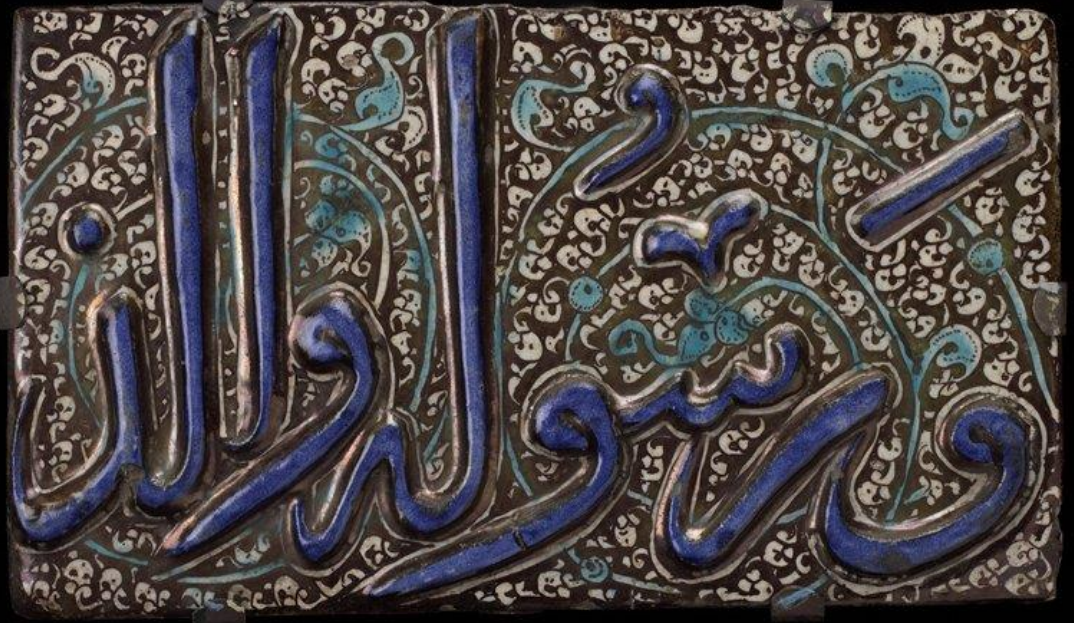 ورسوله والذ